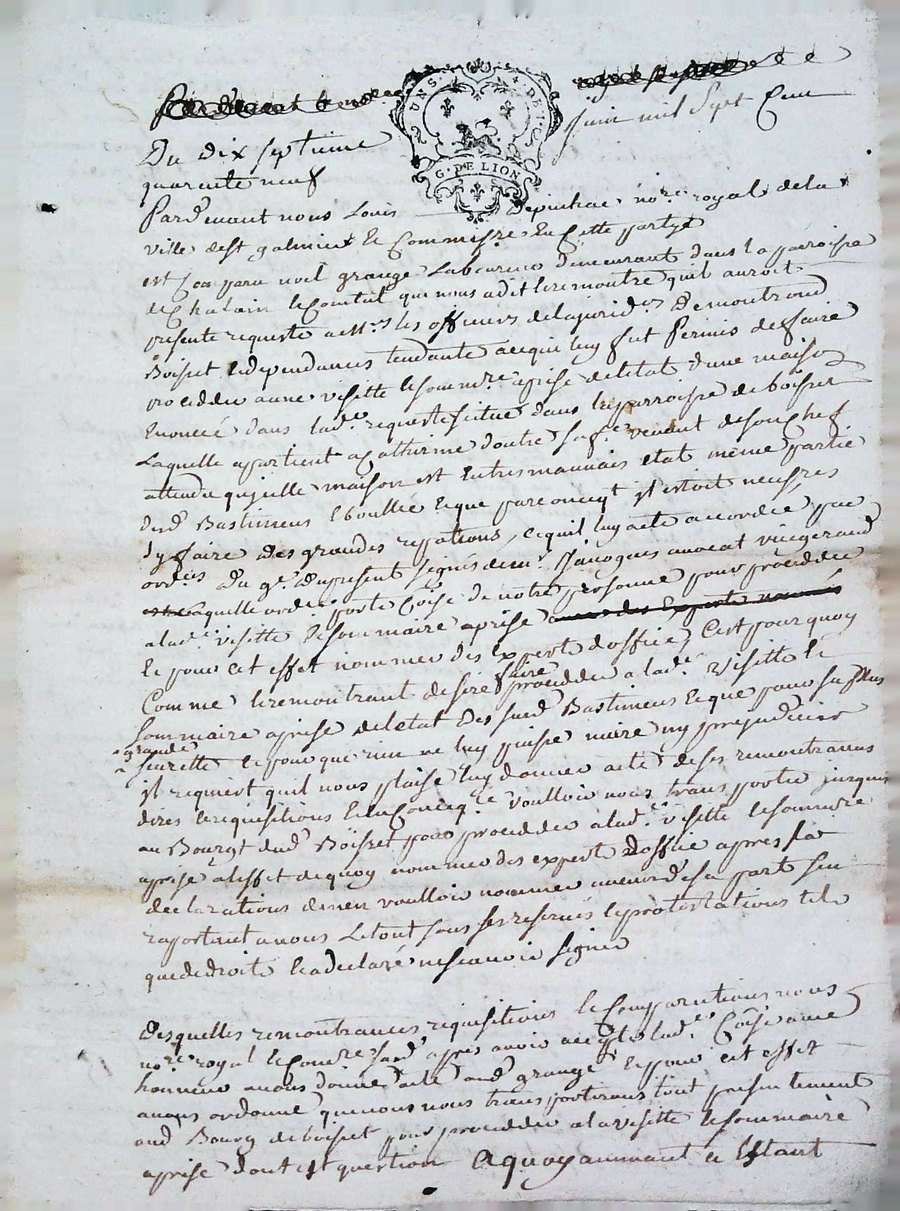 UN S. DE I.
G. DE LION
Du dix septieme juin mil sept cent
quarente neuf
Pardevant nous Louis Depinhac no.re royal de la
ville de st galmier & Commiss.re En cette partye
est Comparu noel grange Laboureur demeurant dans la parroisse
de Chalain le Comtal qui nous a dit & remontré quil auroit
presenté requeste a mrs les officiers de la jurid.on De montrond
Boisset & dependances tendante a ce qui luy fut Permis de ffaire
proceder a une visitte & somm.re aprise de letat dune maison
Enoncée dans lad.e requeste scitué dans la parroisse de boisset
Laquelle appartient a Catherine doutre sa fe. venant de son Chef
attendu quicelle maison est En tres mauvais état même partie
dud. Bastiment Eboullée & que par conceqt il estoit necess.re
dy faire des grandes reparations, ce quil luy a eté accordée par
ord.ce du 9e. du present signée de mr. Jacoques avocat vicegerand
laquelle ord.ce porte Coise de notre personne pour proceder
a lad.e visitte & sommaire aprise
Et pour cet effet nommer des Expert doffice, C'est pourquoy
Comme le remontrant desire faire proceder a lad.e visitte &
sommaire aprise de letat Des susd. Bastiment & que pour sa plus
grande
seurette & pour que rien ne luy puisse nuire ny prejudicier
il requiert quil nous plaise luy donner acte de ses remontrances
dires & requisitions & En Conceq.ce voulloir nous transporter jusques
au Bourgt dud. Boisset pour proceder a lad.e visitte & somm.re
aprise a leffet de quoy nommer des expert doffice apres sa
declarations den voulloir nommer aucun de sa part sen
raportent a nous Le tout sous ses reserves & protestations tel
que de droit & a declaré ne scavoir signer
Desquelles remontrances requisitions & Comparutions nous
no.re royal & Comre. susd. apres avoir accepté lad.e Coise avec
honneur avons donné acte aud. grange & pour cet effet
avons ordonné que nous nous transporterons tout presentement
aud. Bourg de boisset pour proceder a la visitte & sommaire
aprise dont est question A quoy a Estant